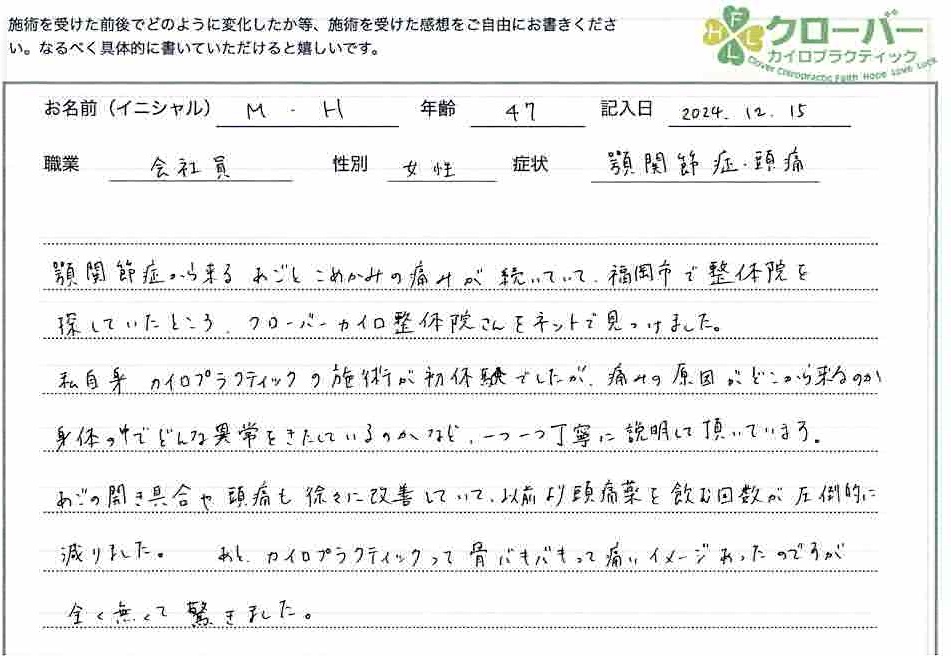 施術を受けた前後でどのように変化したか等、施術を受けた感想をご自由にお書きくださ
い。なるべく具体的に書いていただけると嬉しいです。
F L L H
クローバー
カイロプラクティック
Clover Chiropractic Faith Hope Love Luck
お名前（イニシャル） M・H 年齢 47 記入日 2024.12.15
職業 会社員 性別 女性 症状 顎関節症・頭痛
顎関節症から来る あごと こめかみの痛みが 続いていて、福岡市で整体院を
探していたところ、クローバーカイロ整体院さんをネットで見つけました。
私自身 カイロプラクティックの施術が初体験でしたが、痛みの原因がどこから来るのか
身体の中でどんな異常をきたしているのかなど、一つ一つ丁寧に説明して頂いています。
あごの開き具合や頭痛も徐々に改善していて、以前より頭痛薬を飲む回数が圧倒的に
減りました。 あと、カイロプラクティックって骨バキバキって痛いイメージあったのですが
全く無くて驚きました。